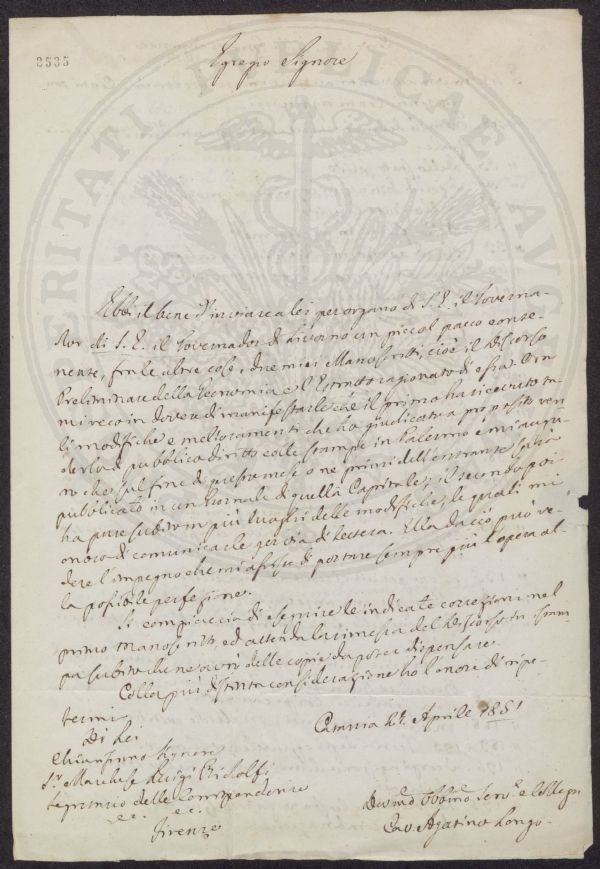 3535
Egregio Signore
VERITATI PUBLICAE
Ebbi il bene d'inviare a lei per organo di S. E. il Governa-
dor di S. E. il Governador di Livorno un piccol pacco conte-
nente, fra le altre cose, due miei Manoscritti, cioè il Discorso
Preliminare della Economia e l'Estratto ragionato di essa. Ora
mi reco in dovere di manifestarle che il primo ha ricevuto ta-
li modifiche e melioramenti che ho giudicato a proposito ren
derlo di pubblico diritto colle stampe in Palermo e mi augu-
ro che sul fine di questo mese o ne' primi dell'entrante sarà
pubblicato in un Giornale di quella Capitale; il secondo poi
ha pure subito in più luoghi delle modifiche, le quali mi
onoro di comunicarle per via di lettera. Ella da ciò può ve-
dere l'impegno che mi ho di portare sempre più l'opera al-
la possibile perfezione.
Si compiaccia di eseguire le indicate correzioni nel
primo manoscritto, ed attenda la rimessa del Discorso in istam-
pa subito che ne avrò delle copie da poter dispensare.
Colla più distinta considerazione ho l'onore di ripe-
termi
Di Lei
Catania 24 Aprile 1851
Chiarissimo Signore
Sr. Marchese Luigi Ridolfi
Segretario delle Corrispondenze
ec. ec.
Firenze
Devmo Obbmo Serv.e e Collega
Cav. Agatino Longo